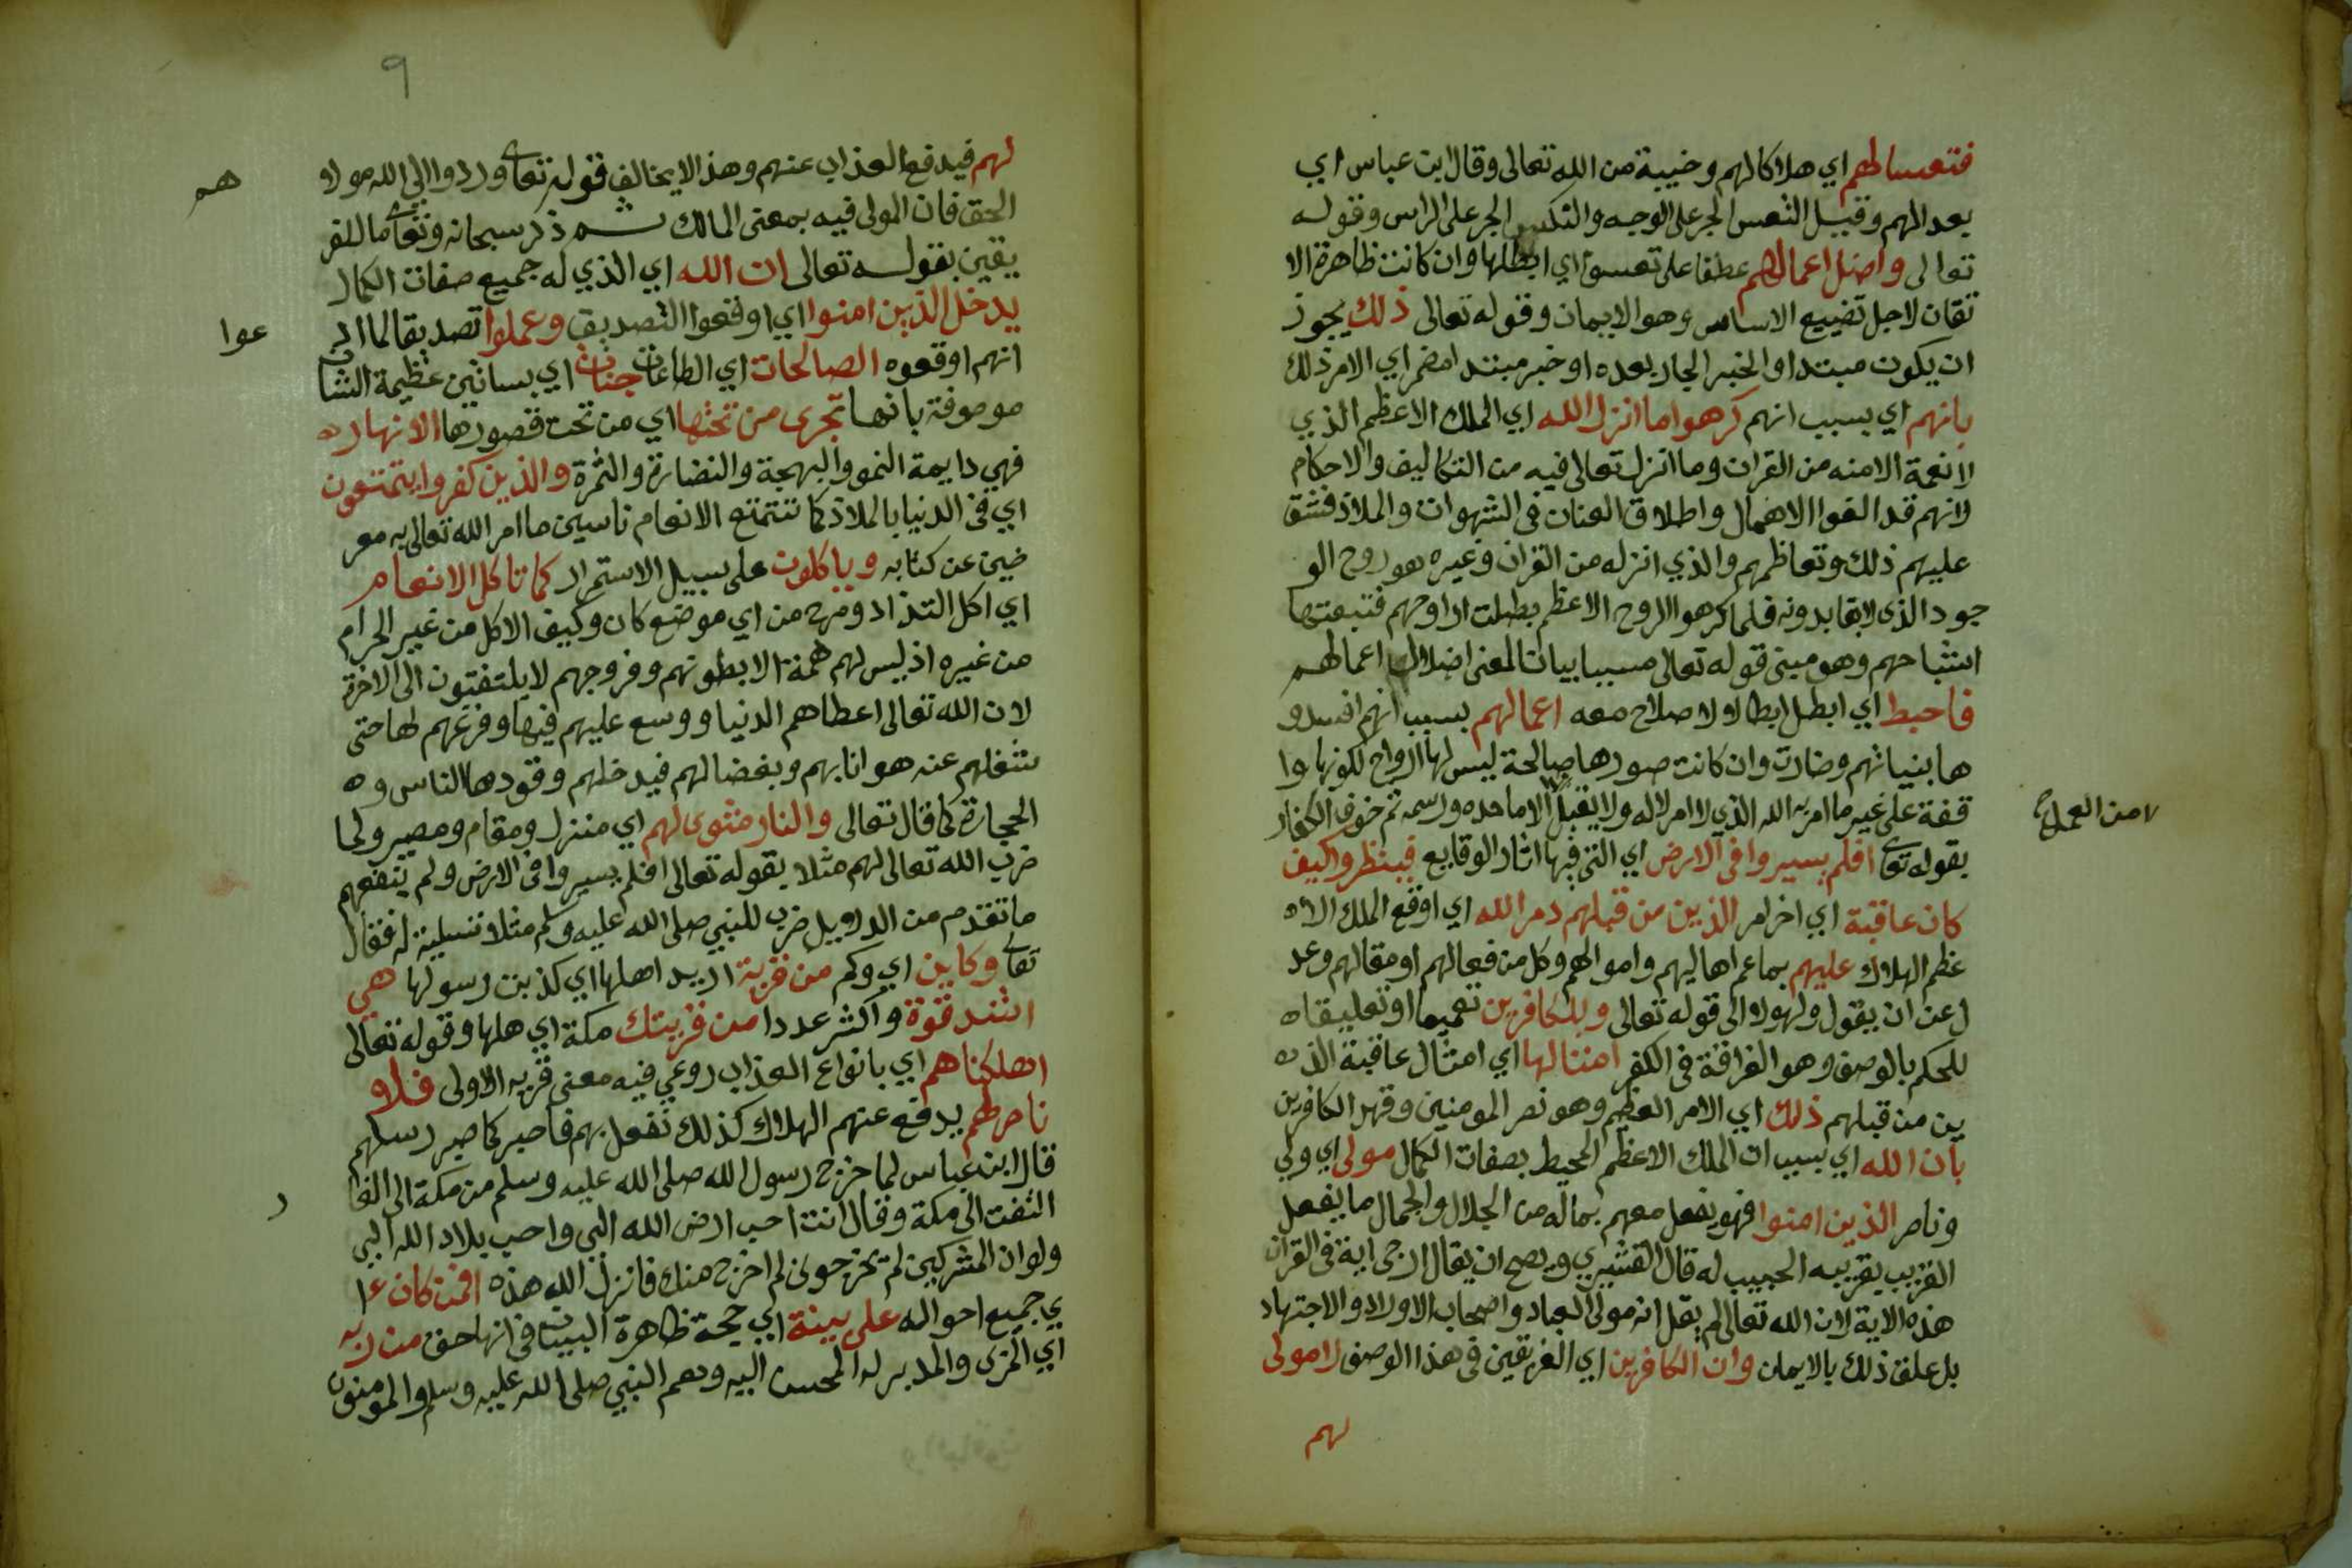 فتعسا لهم اي هلاكا لهم وخيبة من الله تعالى وقال ابن عباس اي
بعدا لهم وقيل التعس الجر على الوجه والنكس الجر على الراس وقوله
تعالى واضل اعمالهم عطفا على تعسوا اي ابطلها وان كانت ظاهرة الا
تقان لاجل تضييع الاساس وهو الايمان وقوله تعالى ذلك يجوز
ان يكون مبتدا والخبر الجار بعده او خبر مبتدا مضمر اي الامر ذلك
بانهم اي بسبب انهم كرهوا ما انزل الله اي الملك الاعظم الذي
لا نعمة الا منه من القران وما انزل تعالى فيه من التكاليف والاحكام
لانهم قد الفوا الاهمال واطلاق العنان في الشهوات والملاذ فشق
عليهم ذلك وتعاظمهم والذي انزله من القران وغيره هو روح الو
جود الذي لا بقا بدونه فلما كرهوا الروح الاعظم بطلت ارواحهم فتبعتها
اشباحهم وهو مبنى قوله تعالى مسببا بيانا لمعنى اضلال اعمالهم
فاحبط اي ابطل ابطالا لا صلاح معه اعمالهم بسبب انهم افسدو
ها بنياتهم وصارت وان كانت صورها صالحة ليس لها ارواح لكونها وا
قفة على غير ما امر به الله الذي لا امر الا له ولا يقبل الا ما حده ورسمه ثم خوف الكفار
من العمل
بقوله تعا افلم يسيروا في الارض اي التي فيها اثار الوقايع فينظروا كيف
كان عاقبة اي اخر امر الذين من قبلهم دمر الله اي اوقع الملك الا
عظم الهلاك عليهم بما عم اهاليهم واموالهم وكل من فعالهم او مقالهم وعد
ل عن ان يقول ولهولاء الى قوله تعالى وللكافرين تعميما وتعليقا
للحكم بالوصف وهو العراقة في الكفر امثالها اي امثال عاقبة الذ
ين من قبلهم ذلك اي الامر العظيم وهو نصر المومنين وقهر الكافرين
بان الله اي بسبب ان الملك الاعظم المحيط بصفات الكمال مولى اي ولي
وناصر الذين امنوا فهو يفعل معهم بماله من الجلال والجمال ما يفعل
القريب بقريبه الحبيب له قال القشيري ويصح ان يقال ارجى اية في القران
هذه الاية لان الله تعالى لم يقل انه مولى العباد واصحاب الاوراد والاجتهاد
بل علق ذلك بالايمان وان الكافرين اي الغريقين في هذا الوصف لا مولى
لهم
٩
لهم فيدفع العذاب عنهم وهذا لا يخالف قوله تعا وردوا الى الله مولا
هم
الحق فان المولى فيه بمعنى المالك ثم ذكر سبحانه وتعا ما للفر
يقين بقوله تعالى ان الله اي الذي له جميع صفات الكمال
يدخل الذين امنوا اي اوقعوا التصديق وعملوا تصديقا لما اد
عوا
انهم اوقعوه الصالحات اي الطاعات جنات اي بساتين عظيمة الشان
موصوفة بانها تجري من تحتها اي من تحت قصورها الانهار
فهي دايمة النمو والبهجة والنضارة والثمرة والذين كفروا يتمتعون
اي في الدنيا بالملاذ كما تتمتع الانعام ناسين ما امر الله تعالى به معر
ضين عن كتابه وياكلون على سبيل الاستمرار كما تاكل الانعام
اي اكل التذاذ ومرح من اي موضع كان وكيف الاكل من غير الحرام
من غيره اذ ليس لهم همة الا بطونهم وفروجهم لا يلتفتون الى الاخرة
لان الله تعالى اعطاهم الدنيا ووسع عليهم فيها وفرغهم لها حتى
شغلهم عنه هوانا بهم وبغضا لهم فيدخلهم وقودها الناس و
الحجارة كما قال تعالى والنار مثوى لهم اي منزل ومقام ومصير ولما
ضرب الله تعالى لهم مثلا بقوله تعالى افلم يسيروا في الارض ولم ينفعهم
ما تقدم من الدلايل ضرب للنبي صلى الله عليه وسلم مثلا تسلية له فقال
تعا وكاين اي وكم من قرية اريد اهلها اي كذبت رسولها هي
اشد قوة واكثر عددا من قريتك مكة اي هلها وقوله تعالى
اهلكناهم اي بانواع العذاب روعي فيه معنى قرية الاولى فلا
ناصر لهم يدفع عنهم الهلاك كذلك نفعل بهم فاصبر كما صبر رسلهم
قال ابن عباس لما خرج رسول الله صلى الله عليه وسلم من مكة الى الغا
ر
التفت الى مكة وقال انت احب ارض الله الي واحب بلاد الله الي
ولو ان المشركين لم يخرجوني لم اخرج منك فانزل الله هذه افمن كان
ي جميع احواله على بينة اي حجة ظاهرة البيان في انها حق من ربه
اي المربي والمدبر له المحسن اليه وهم النبي صلى الله عليه وسلم والمومنون